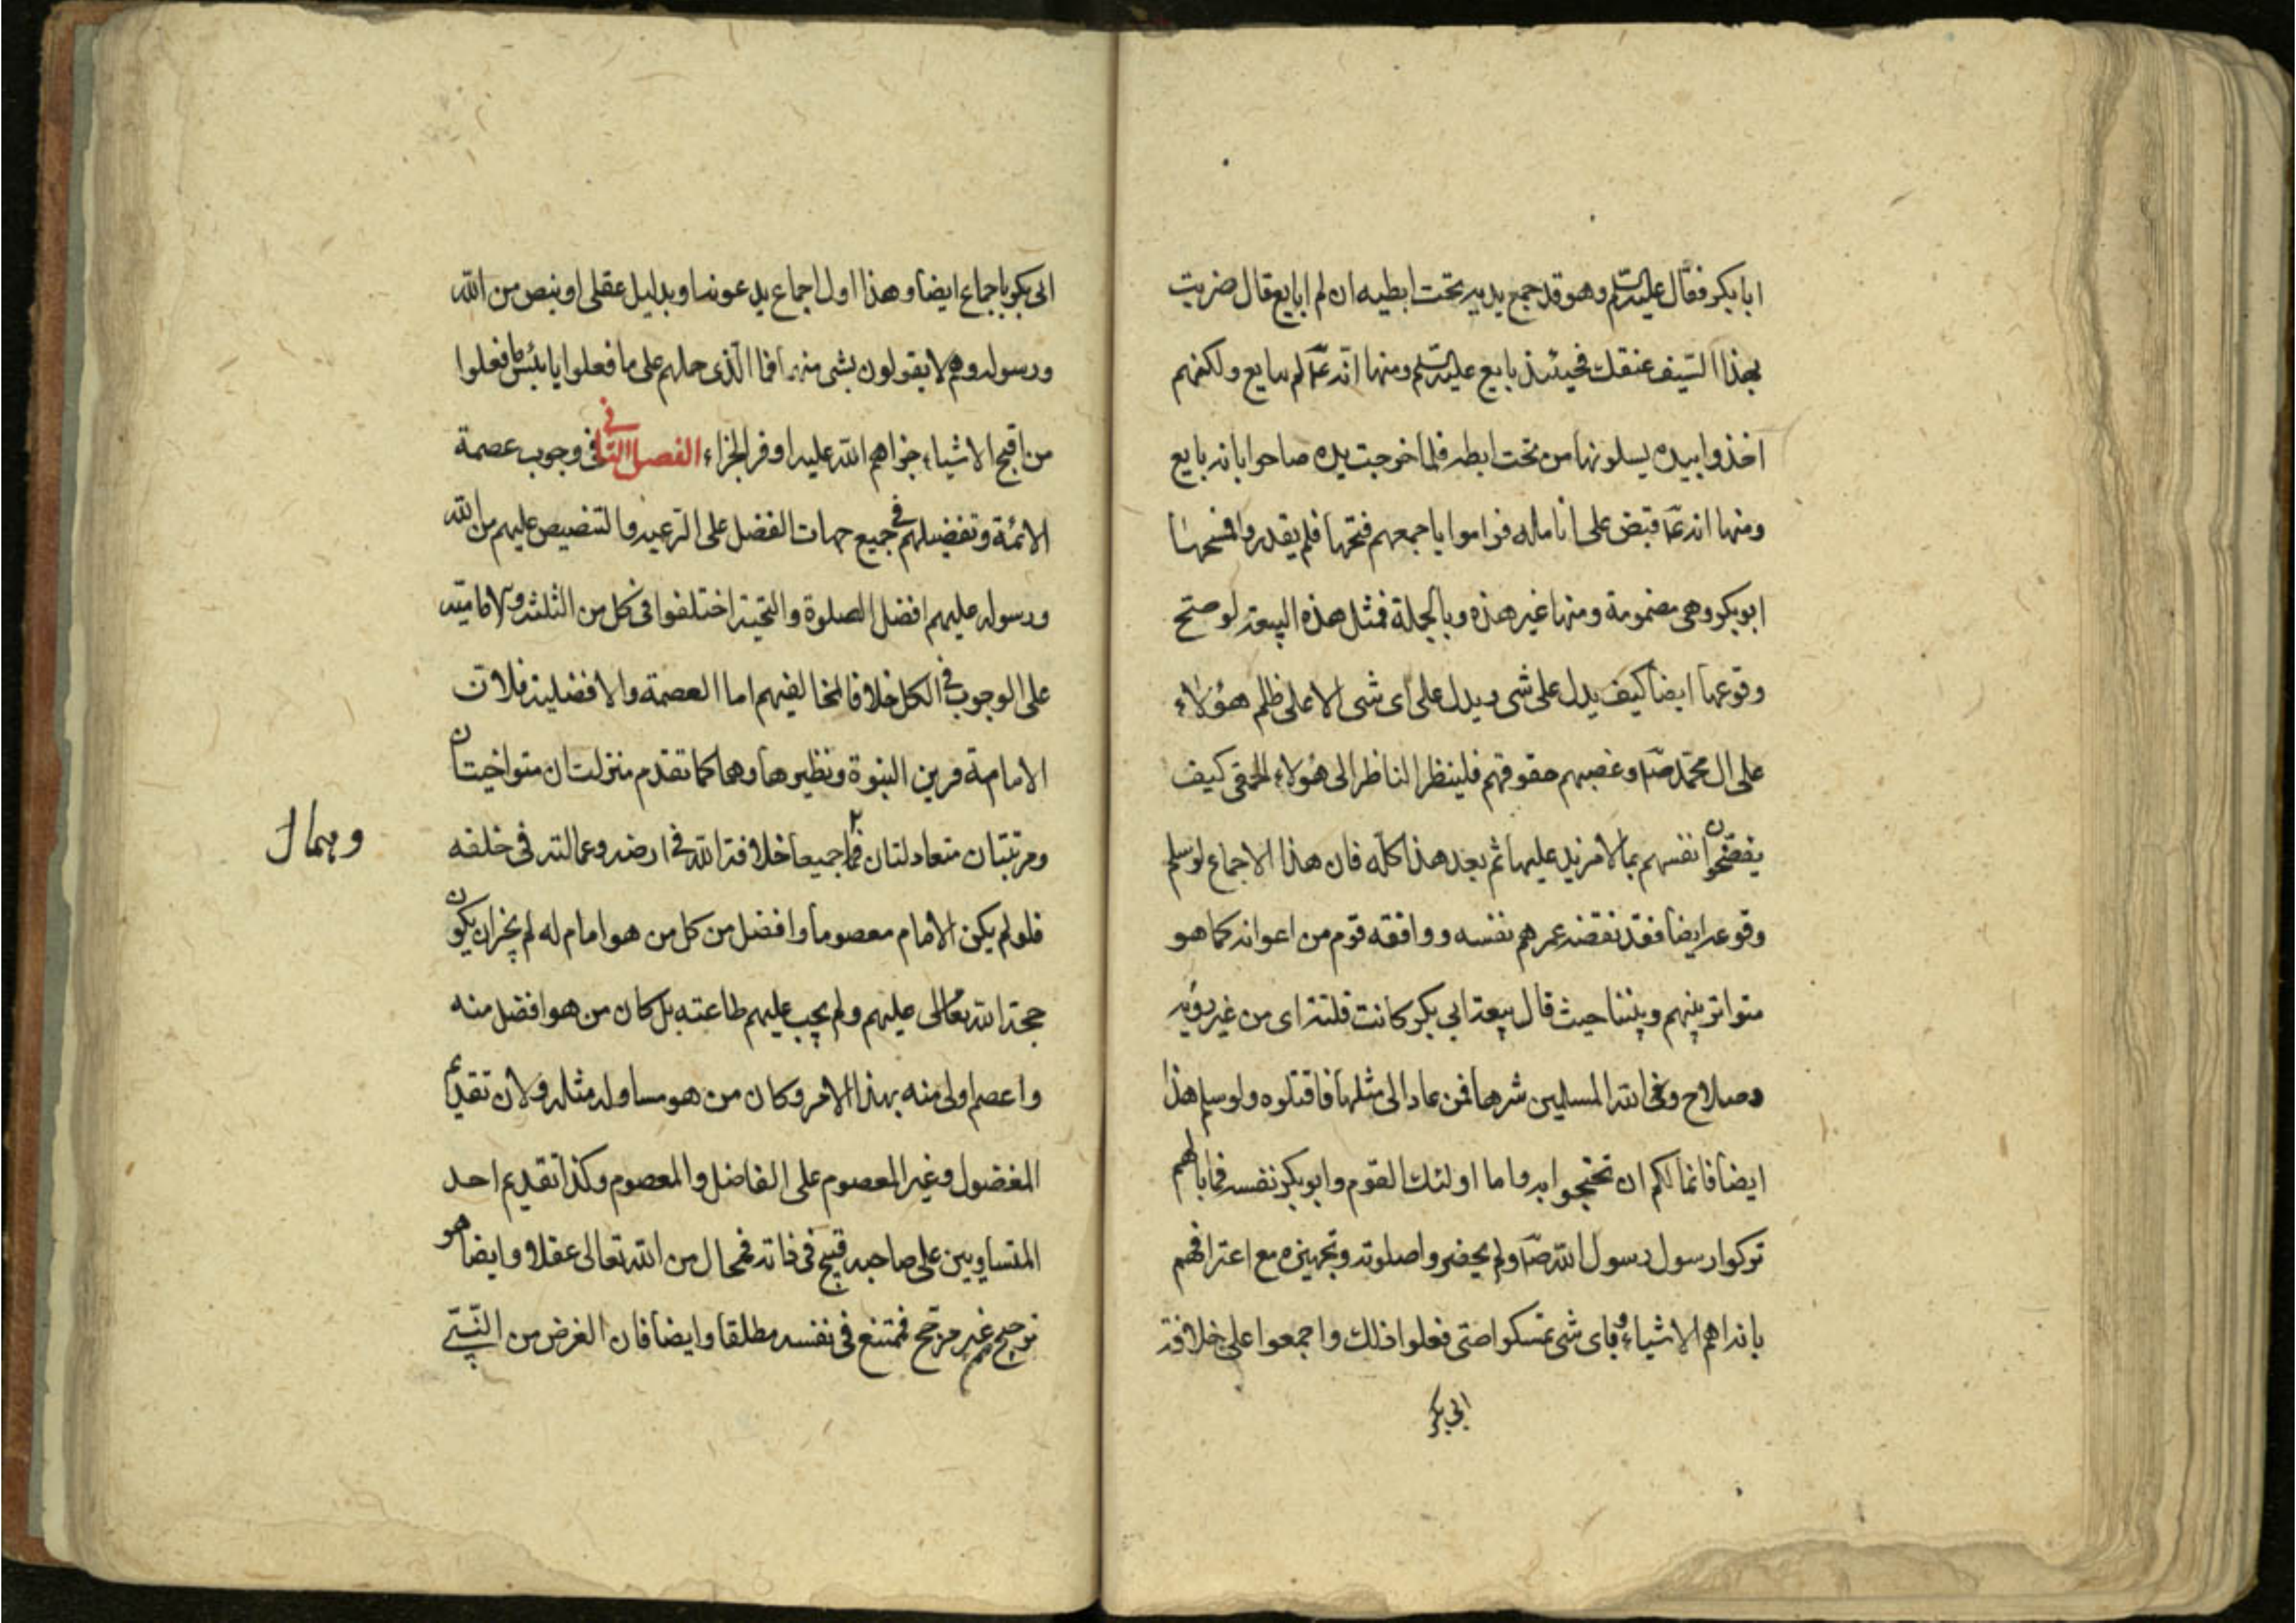 ابا بكر فقال عليه السلم وهو قد جمع يديه تحت ابطيه ان لم ابايع قال ضربت
بهذا السيف عنقك فحينئذ بايع عليه السلم ومنها انه ع لم يبايع ولكنهم
اخذوا بيده يسلونها من تحت ابطه فلما خرجت يده صاحوا بانه بايع
ومنها انه ع قبض على انامله فراموا باجمعهم فتحها فلم يقدروا فمسحها
ابو بكر وهى مضمومة ومنها غير هذه وبالجملة فمثل هذه البيعة لو صح
وقوعها ايضا كيف يدل على شى ويدل على اى شى الا على ظلم هؤلاء
على ال محمد ص وغصبهم حقوقهم فلينظر الناظر الى هؤلاء الحمقى كيف
يفضحون انفسهم بما لا مزيد عليها ثم بعد هذا كله فان هذا الاجماع لو سلم
وقوعه ايضا فقد نقضه عمرهم نفسه ووافقه قوم من اعوانه كما هو
متواتر بينهم وبيننا حيث قال بيعة ابي بكر كانت فلتة اى من غير روية
وصلاح وقى الله المسلمين شرها فمن عاد الى مثلها فاقتلوه ولو سلم هذا
ايضا فانما لكم ان تحتجوا به واما اولئك القوم وابو بكر نفسه فما بالهم
تركوا رسول رسول الله ص ولم يحضروا صلوته وتجهيزه مع اعترافهم
بانه اهم الاشياء وباى شى تمسكوا حتى فعلوا ذلك واجمعوا على خلافة
ابي بكر
ابى بكر باجماع ايضا وهذا اول اجماع يدعونه او بدليل عقلى او بنص من الله
ورسوله وهم لا يقولون بشى منه فما الذى حملهم على ما فعلوا يا بئس ما فعلوا
من اقبح الاشياء جزاهم الله عليه اوفر الجزاء الفصل الثانى فى وجوب عصمة
الائمة وتفضيلهم فى جميع جهات الفضل على الرعية والتنصيص عليهم من الله
ورسوله عليهم افضل الصلوة والتحية اختلفوا فى كل من الثلثة والامامية
على الوجوب فى الكل خلافا لمخالفيهم اما العصمة والافضلية فلان
الامامة قرين النبوة ونظيرها وهما كما تقدم منزلتان متواخيتان
ومرتبتان متعادلتان فهما جميعا خلافة الله فى ارضه وعمالته فى خلقه
وهما ل
فلو لم يكن الامام معصوما وافضل من كل من هو امام له لم يجز ان يكون
حجة الله تعالى عليهم ولم يجب عليهم طاعته بل كان من هو افضل منه
واعصم اولى منه بهذا الامر وكان من هو مساو له مثله ولان تقديم
المفضول وغير المعصوم على الفاضل والمعصوم وكذا تقديم احد
المتساويين على صاحبه قبيح فى ذاته فمحال من الله تعالى عقلا وايضا هو
ترجيح من غير مرجح فممتنع فى نفسه مطلقا وايضا فان الغرض من النبى